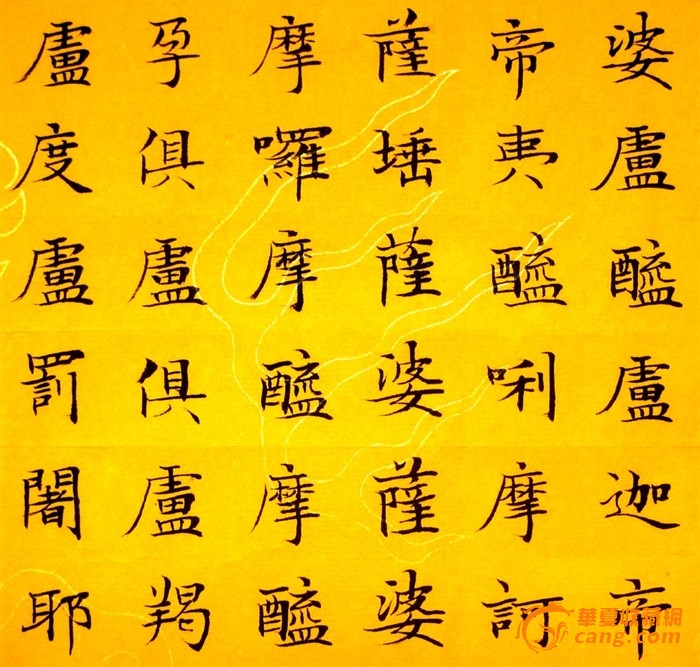 婆盧醯盧迦帝
帝夷醯唎摩訶
薩埵薩婆薩婆
摩囉摩醯摩醯
孕俱盧俱盧羯
盧度盧罰闍耶
華夏收藏網
cang.com